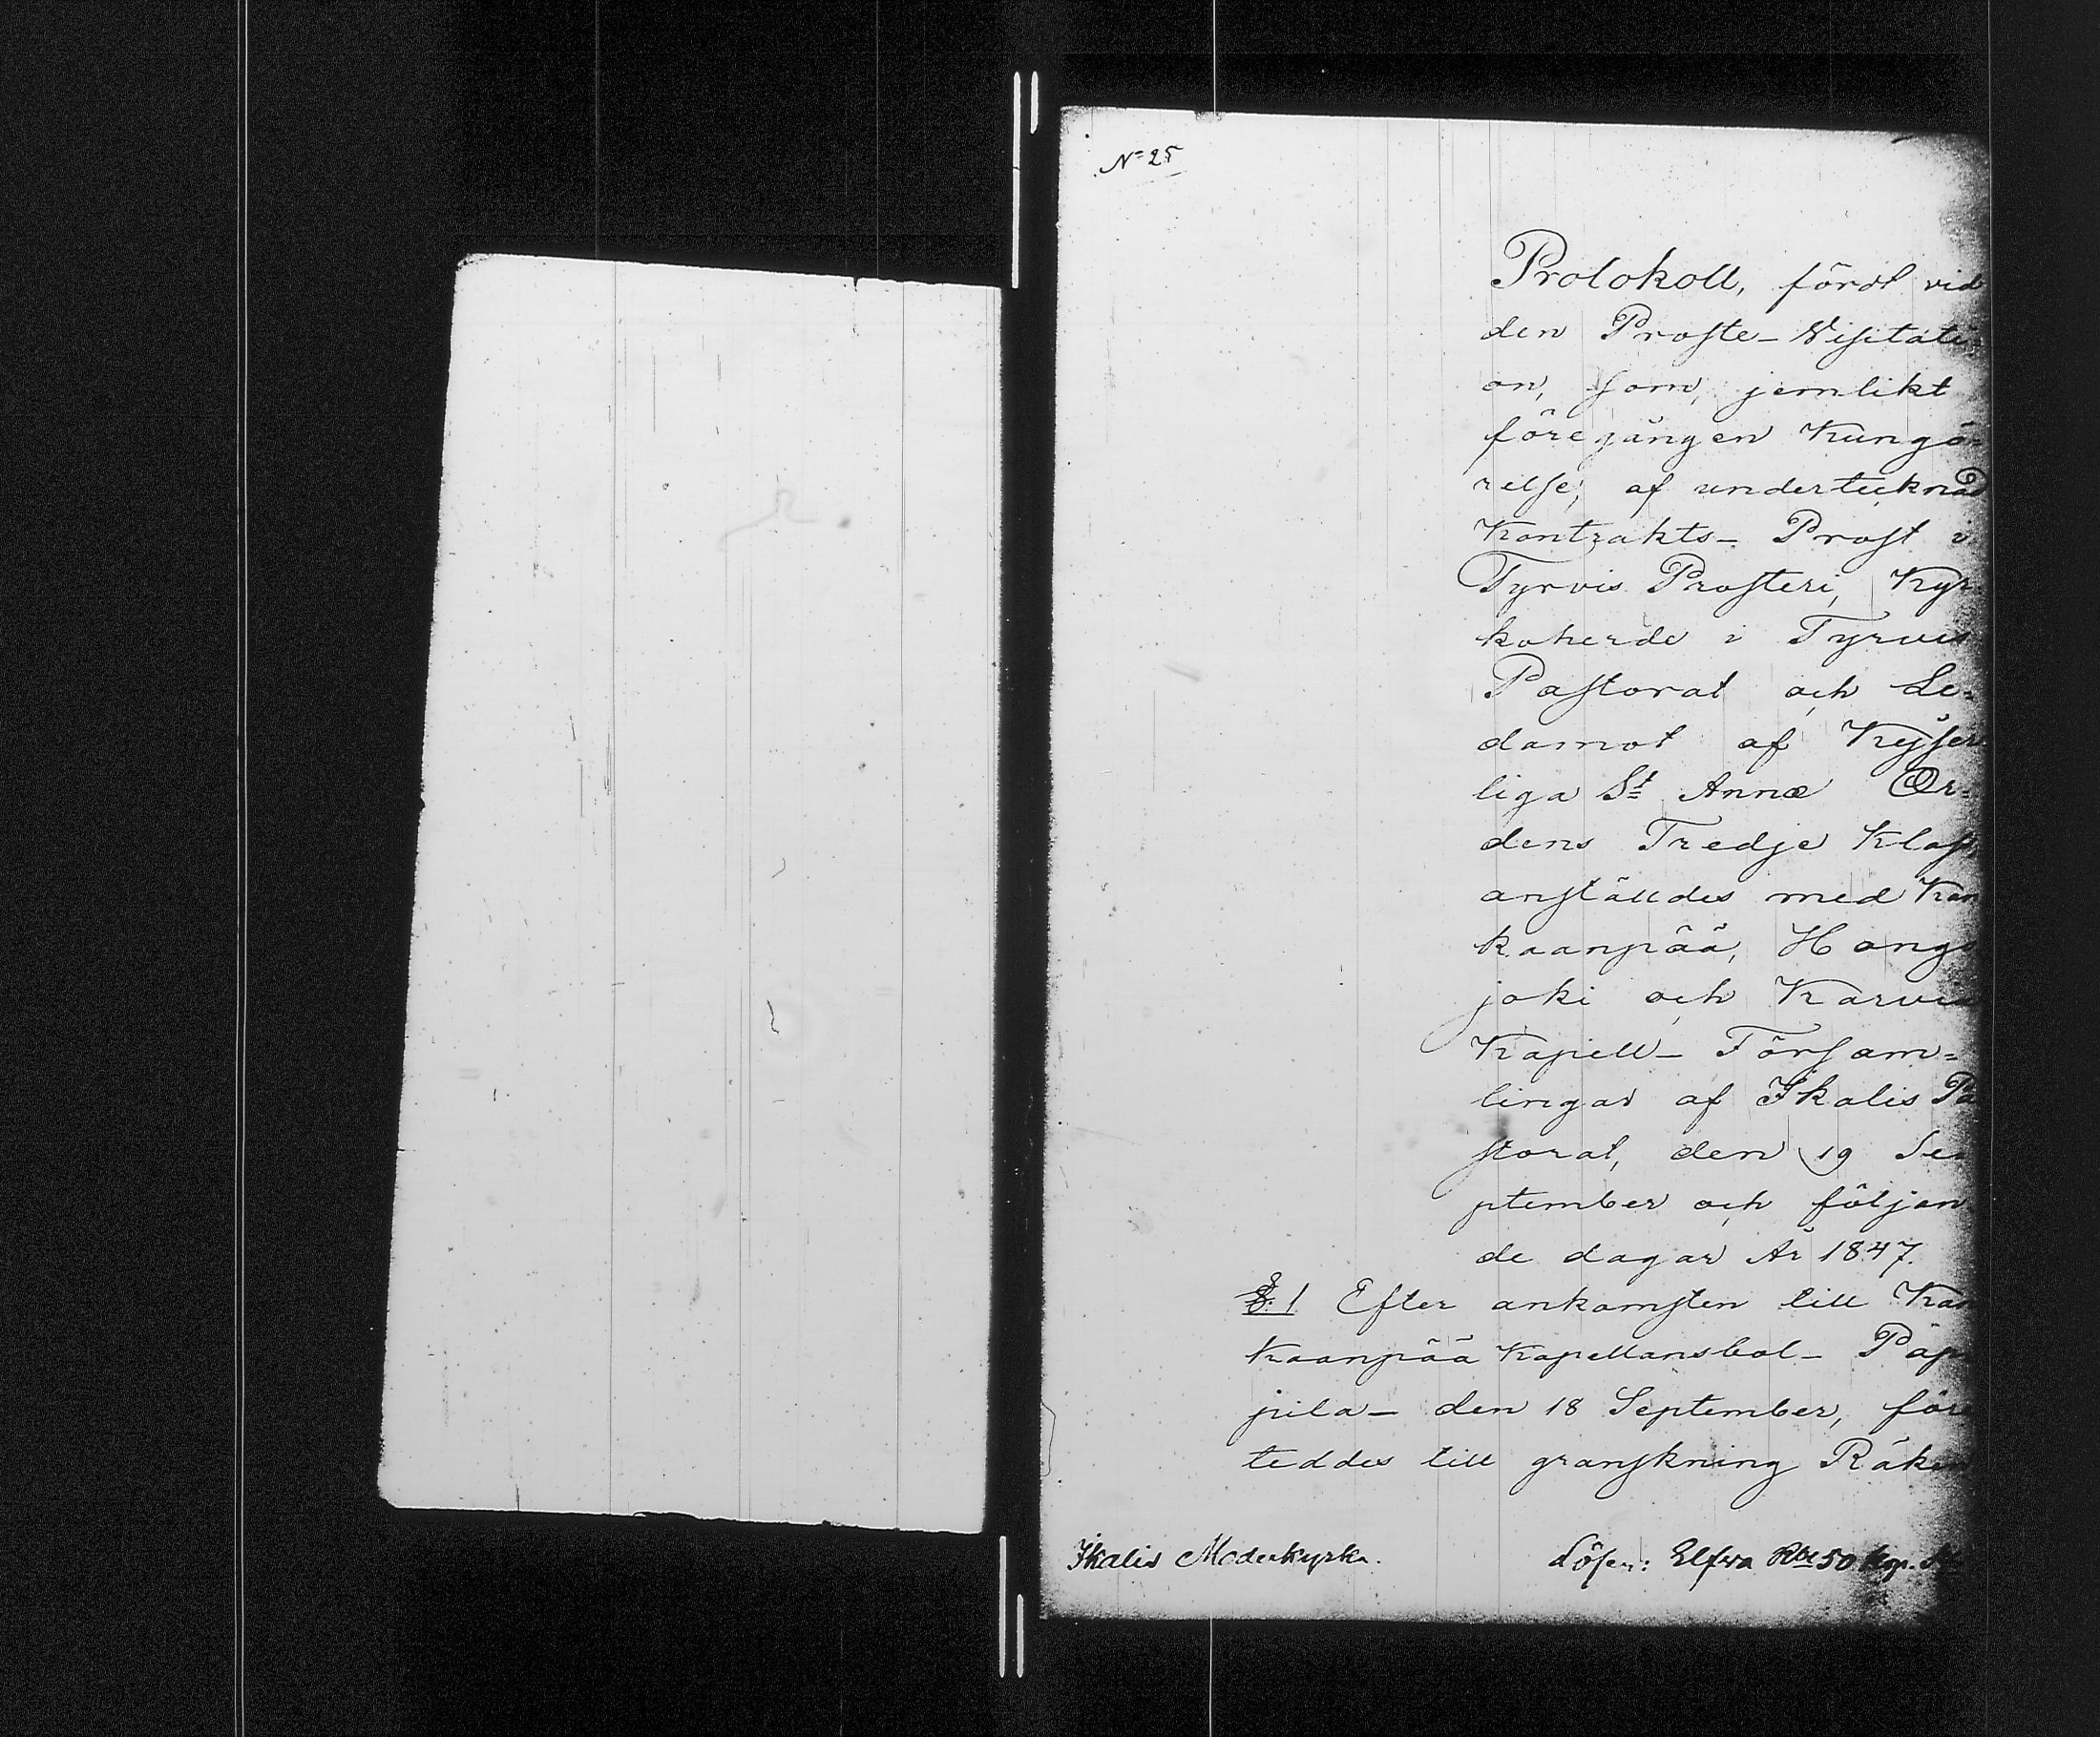 N=25
Protokoll, fördt vid
den Proste-Visitati=
on, som, jemlikt
föregången Kungö=
relse, af undertecknad
Kontrakts-Prost i
Tyrvis Prosteri, Kyr=
koherde i Tyrvis
Pastorat och Le=
damot af Kejser
liga St Annæ Or=
dens Tredje Klass
anställdes med Kan
kaanpää, Hongo
joki och Karvia
Kapell-Försam=
lingar af Ikalis Pa
storat, den 19 Se=
ptember och följan
de dagar År 1847.
§. 1 Efter ankomsten till Kan
kaanpää Kapellansbol-Pap
pila- den 18 September, före
teddes till granskning Räken
Ikalis Moderkyrka.
Lösen: Elfva Rbl 50 kop.